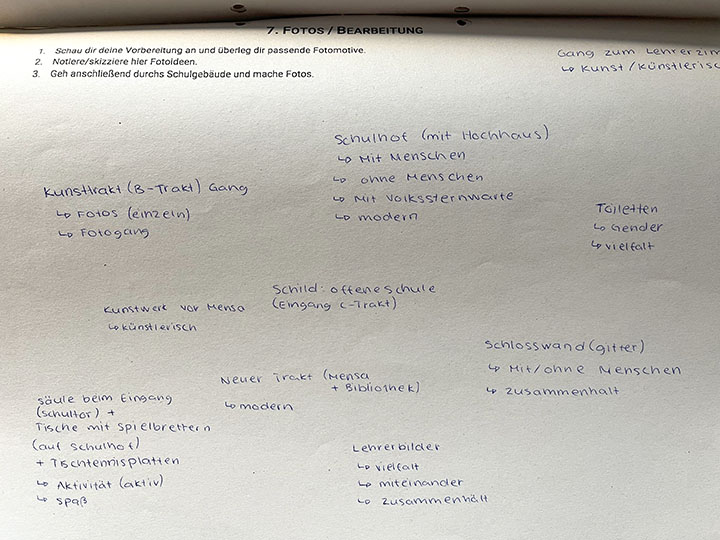 7. FOTOS / BEARBEITUNG
1. Schau dir deine Vorbereitung an und überleg dir passende Fotomotive.
2. Notiere/skizziere hier Fotoideen.
3. Geh anschließend durchs Schulgebäude und mache Fotos.
Gang zum Lehrerzim
↳ Kunst/künstlerisc
Schulhof (mit Hochhaus)
↳ Mit Menschen
↳ ohne Menschen
↳ Mit Volkssternwarte
↳ modern
Kunsttrakt (B-Trakt) Gang
↳ Fotos (einzeln)
↳ Fotogang
Toiletten
↳ Gender
↳ vielfalt
Schild: offene schule
(Eingang C-Trakt)
Kunstwerk vor Mensa
↳ künstlerisch
Schlosswand (gitter)
↳ Mit/ohne Menschen
↳ Zusammenhalt
Neuer Trakt (Mensa
+ Bibliothek)
↳ modern
säule beim Eingang
(schultor) +
Tische mit Spielbrettern
(auf Schulhof)
+ Tischtennisplatten
↳ Aktivität (aktiv)
↳ spaß
Lehrerbilder
↳ vielfalt
↳ miteinander
↳ zusammenhält